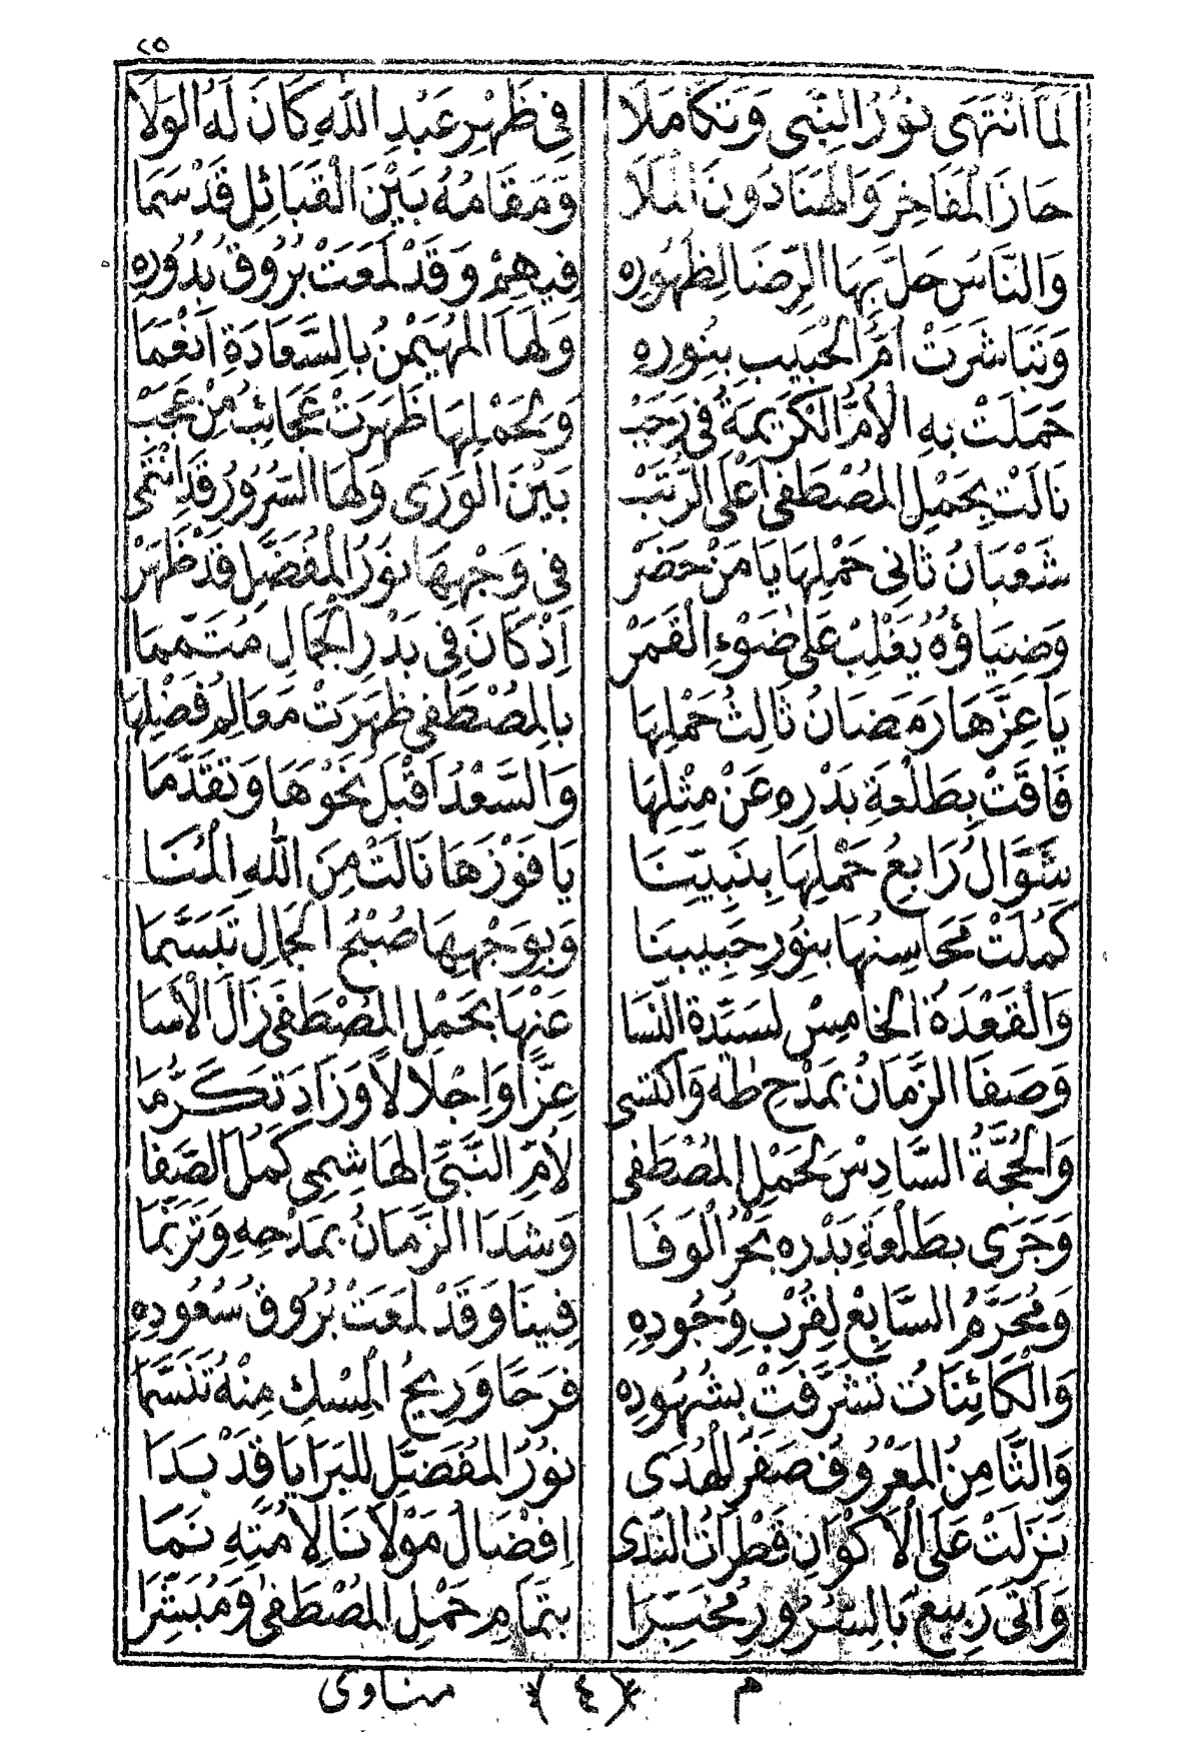 ٢٥
لَمَّا انْتَهَى نُورُ النَّبِى وَتَكَامَلَا فِى ظَهْرِ عَبْدِ اللّٰهِ كَانَ لَهُ الوَلَا
حَازَ الْمَفَاخِرَ وَالْهَنَا دُونَ الْمَلَا وَمَقَامُهُ بَيْنَ الْقَبَائِلِ قَدْ سَمَا
وَالنَّاسُ حَلَّ بِهَا الرِّضَا لِظُهُورِهِ فِيهِمْ وَقَدْ لَمَعَتْ بُرُوقُ بُدُورِهِ
وَتَبَاشَرَتْ أُمُّ الْحَبِيبِ بِنُورِهِ وَلَهَا الْمُهَيْمِنُ بِالسَّعَادَةِ اَنْعَمَا
حَمَلَتْ بِهِ الْأُمُّ الْكَرِيمَةُ فِى رَجَبْ وَلِحَمْلِهَا ظَهَرَتْ عَجَائِبُ مِنْ عَجَبْ
نَالَتْ بِحَمْلِ الْمُصْطَفَى اَعْلَى الرُّتَبْ بَيْنَ الْوَرَى وَلَهَا السُّرُورُ قَدِ انْتَمَى
شَعْبَانُ ثَانِى حَمْلِهَا يَا مَنْ حَضَرْ فِى وَجْهِهَا نُورُ الْمُفَضَّلِ قَدْ ظَهَرْ
وَضِيَاؤُهُ يَغْلِبْ عَلَى ضَوْءِ الْقَمَرْ اِذْ كَانَ فِى بَدْرِ الْجَمَالِ مُتَمِّمَا
يَا عِزَّهَا رَمَضَانُ ثَالِثُ حَمْلِهَا بِالْمُصْطَفَى ظَهَرَتْ مَعَالِمُ فَضْلِهَا
فَاقَتْ بِطَلْعَةِ بَدْرِهِ عَنْ مِثْلِهَا وَالسَّعْدُ اَقْبَلَ نَحْوَهَا وَتَقَدَّمَا
شَوَّالُ رَابِعُ حَمْلِهَا بِنَبِيِّنَا يَا فَوْزَهَا نَالَتْ مِنَ اللّٰهِ الْمُنَا
كَمُلَتْ مَحَاسِنُهَا بِنُورِ حَبِيبِنَا وَبِوَجْهِهَا صُبْحُ الْجَمَالِ تَبَسَّمَا
وَالْقَعْدَةُ الْخَامِسْ لِسَيِّدَةِ النِّسَا عَنْهَا بِحَمْلِ الْمُصْطَفَى زَالَ الْأَسَا
وَصَفَا الزَّمَانُ بِمَدْحِ طٰهَ وَاكْتَسَى عِزًّا وَاِجْلَالًا وَزَادَ تَكَرُّمَا
وَالْحُجَّةُ السَّادِسْ لِحَمْلِ الْمُصْطَفَى لِأُمِّ النَّبِىِّ الْهَاشِمِى كَمُلَ الصَّفَا
وَجَرَى بِطَلْعَةِ بَدْرِهِ بَحْرُ الْوَفَا وَشَدَا الزَّمَانُ بِمَدْحِهِ وَتَرَنَّمَا
وَمُحَرَّمُ السَّابِعْ لِقُرْبِ وُجُودِهِ فِينَا وَقَدْ لَمَعَتْ بُرُوقُ سُعُودِهِ
وَالْكَائِنَاتُ تَشَرَّفَتْ بِشُهُودِهِ فَرَحًا وَرِيحُ الْمِسْكِ مِنْهُ تَنَسَّمَا
وَالثَّامِنُ الْمَعْرُوفُ صَفَرُ لِلْهُدَى نُورُ الْمُفَضَّلِ لِلْبَرَايَا قَدْ بَدَا
نَزَلَتْ عَلَى الْأَكْوَانِ قَطْرَاتُ النَّدَى اِفْضَالُ مَوْلَانَا لِأُمَّتِهِ نَمَا
وَاَتَى رَبِيعٌ بِالسُّرُورِ مُخَبِّرَا بِتَمَامِ حَمْلِ الْمُصْطَفَى وَمُبَشِّرَا
م ﴿٤﴾ مناوى